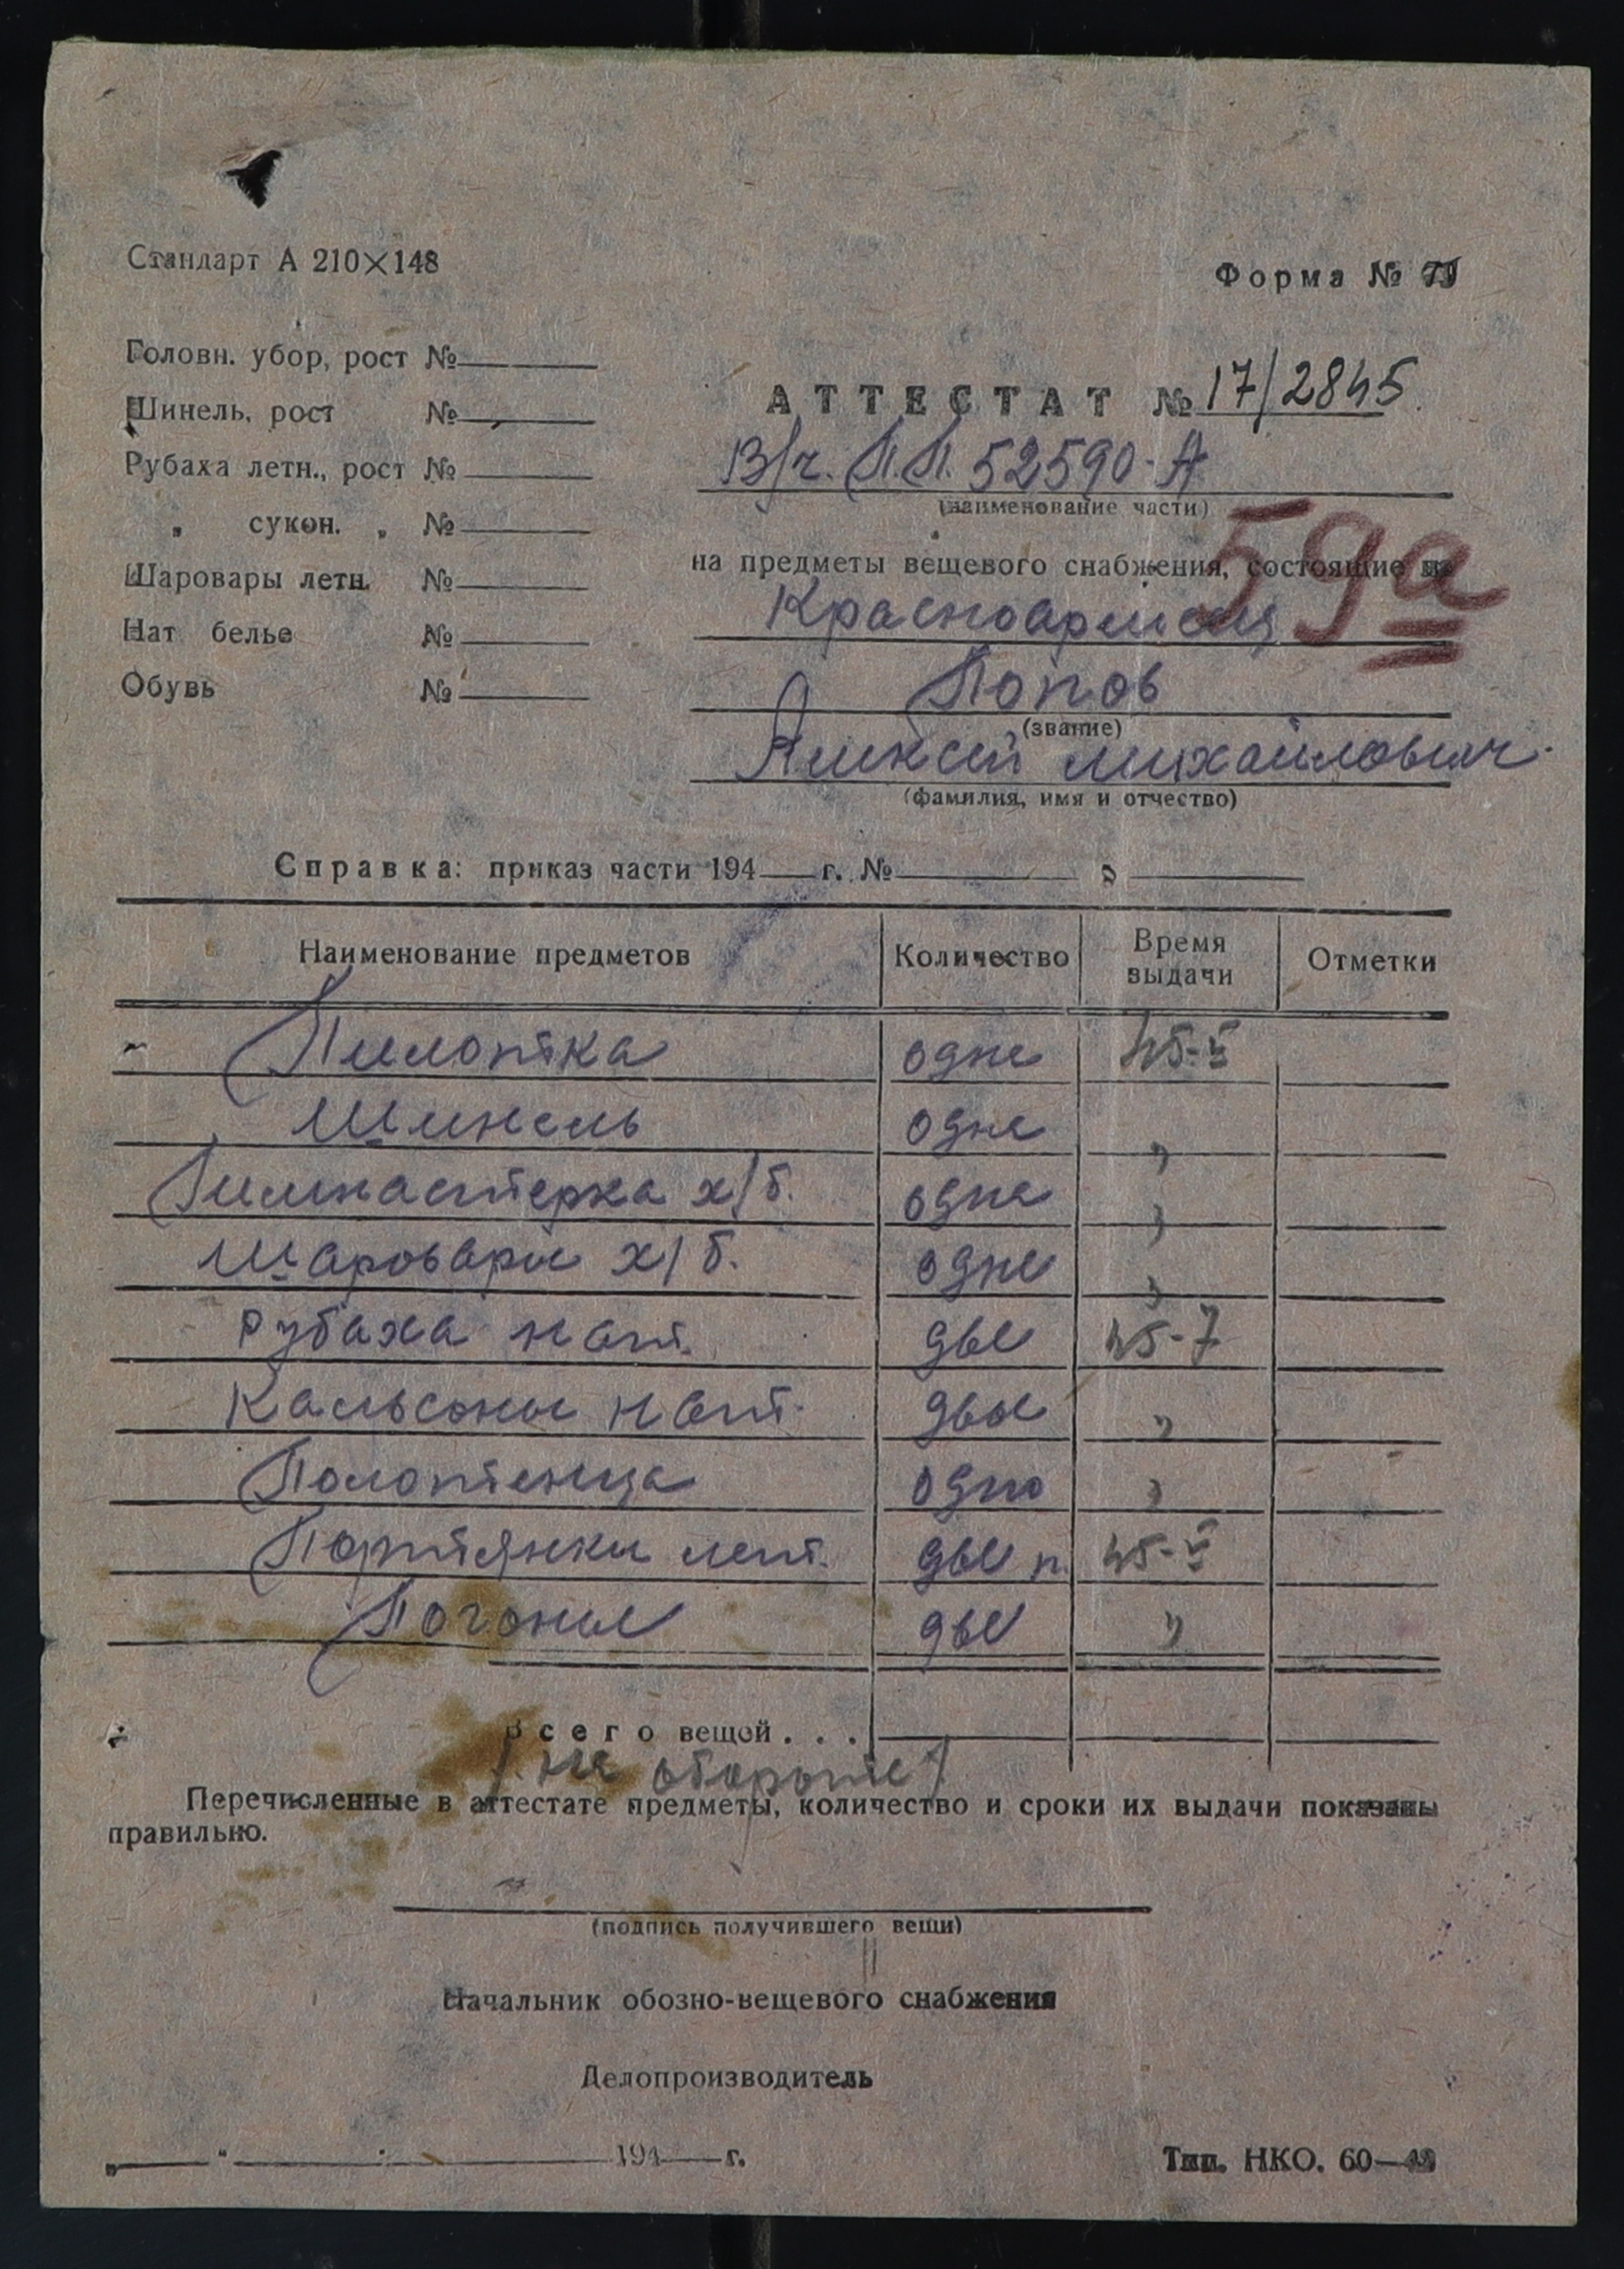 Стандарт А 210×148
Форма №
Головн. убор, рост №
Шинель, рост №
Рубаха летн., рост №
„ сукон. „ №
Шаровары летн. №
Нат белье №
Обувь №
АТТЕСТАТ № 17/2845
В/ч. П.П. 52590-А
(наименование части)
59а
на предметы вещевого снабжения, состоящие на
Красноармеец
Попов
(звание)
Алексей Михайлович.
(фамилия, имя и отчество)
Справка: приказ части 194 г. №
Наименование предметов Количество Время выдачи Отметки
Пилотка одна 45-V
Шинель одна „
Гимнастерка х/б. одна „
Шаровары х/б. одне „
Рубаха нат. две 45-7
Кальсоны нат. двое „
Полотенца одно „
Портянки лет. две п. 45-V
Погоны две „
Всего вещей . . .
/на обороте/
Перечисленные в аттестате предметы, количество и сроки их выдачи показаны
правильно.
(подпись получившего вещи)
Начальник обозно-вещевого снабжения
Делопроизводитель
„ “ 194 г.
Тип. НКО. 60—